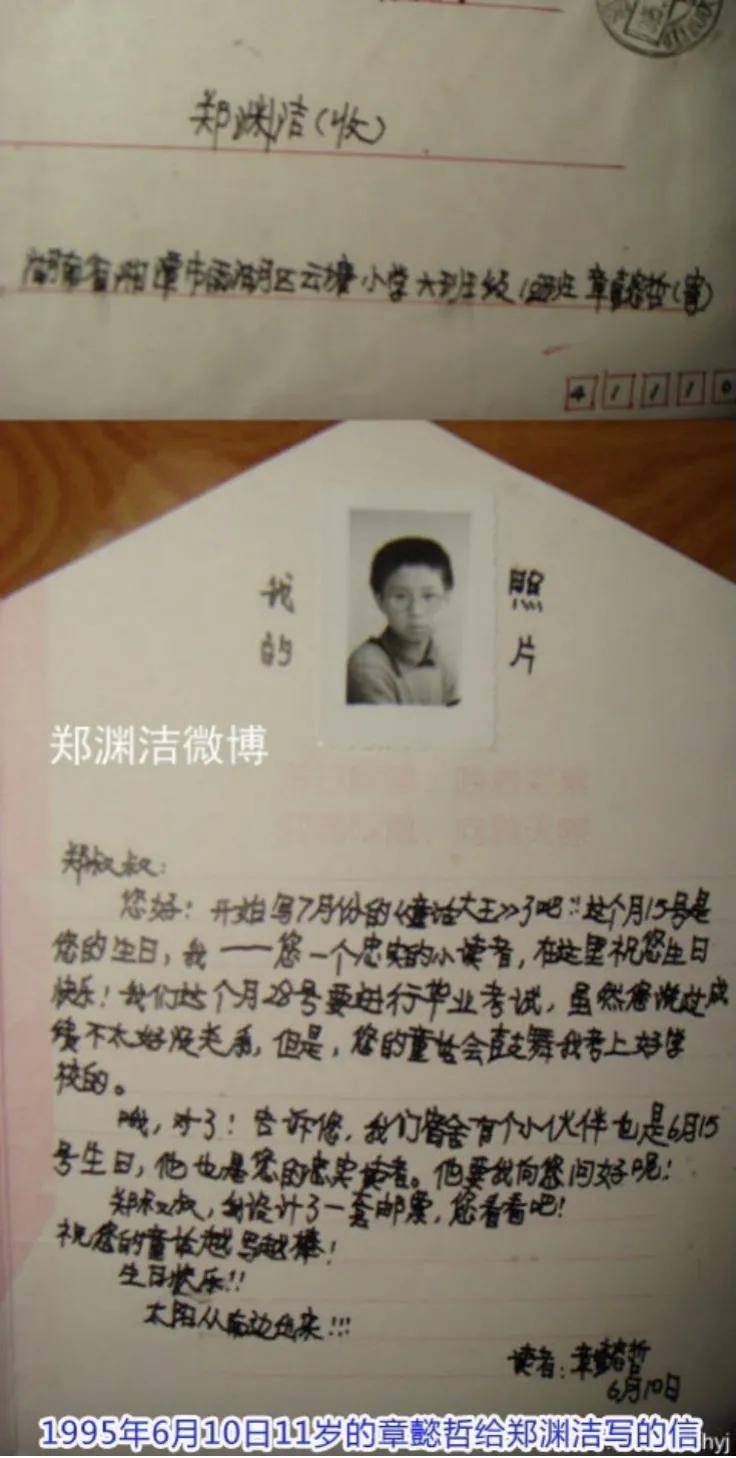 郑渊洁(收)
湖南省湘潭市雨湖区云塘小学六班级 班 章懿哲(寄)
4 1 1 1 0
我的
照片
郑渊洁微博
郑叔叔：
您好！开始写7月份的《童话大王》了吧！！这个月15号是
您的生日，我——您一个忠实的小读者，在这里祝您生日
快乐！我们这个月28号要进行毕业考试，虽然您说过成
绩不太好没关系，但是，您的童话会鼓舞我考上好学
校的。
哦，对了！告诉您，我们宿舍有个小伙伴也是6月15
号生日，他也是您的忠实读者。他要我向您问好呢！
郑叔叔，我设计了一套邮票，您看看吧！
祝您的童话越写越棒！
生日快乐！！
太阳从 边 ！！！
读者：章懿哲
6月10日
1995年6月10日11岁的章懿哲给郑渊洁写的信
hyj